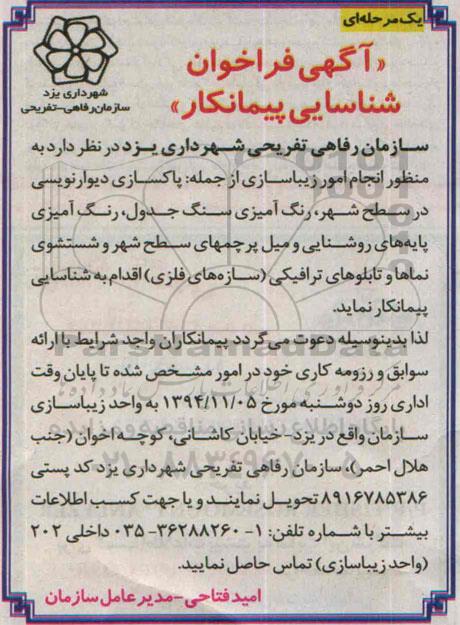 یک مرحله‌ای
شهرداری یزد
سازمان رفاهی-تفریحی
«آگهی فراخوان
شناسایی پیمانکار»
سازمان رفاهی تفریحی شهرداری یزد در نظر دارد به
منظور انجام امور زیباسازی از جمله: پاکسازی دیوارنویسی
در سطح شهر، رنگ آمیزی سنگ جدول، رنگ آمیزی
پایه‌های روشنایی و میل پرچمهای سطح شهر و شستشوی
نماها و تابلوهای ترافیکی (سازه‌های فلزی) اقدام به شناسایی
پیمانکار نماید.
لذا بدینوسیله دعوت می‌گردد پیمانکاران واجد شرایط با ارائه
سوابق و رزومه کاری خود در امور مشخص شده تا پایان وقت
اداری روز دوشنبه مورخ ۱۳۹۴/۱۱/۰۵ به واحد زیباسازی
سازمان واقع در یزد-خیابان کاشانی، کوچه اخوان (جنب
هلال احمر)، سازمان رفاهی تفریحی شهرداری یزد کد پستی
۸۹۱۶۷۸۵۳۸۶ تحویل نمایند و یا جهت کسب اطلاعات
بیشتر با شماره تلفن: ۱-۳۶۲۸۸۲۶۰-۰۳۵ داخلی ۲۰۲
(واحد زیباسازی) تماس حاصل نمایید.
امید فتاحی-مدیر عامل سازمان
ParsNamadData